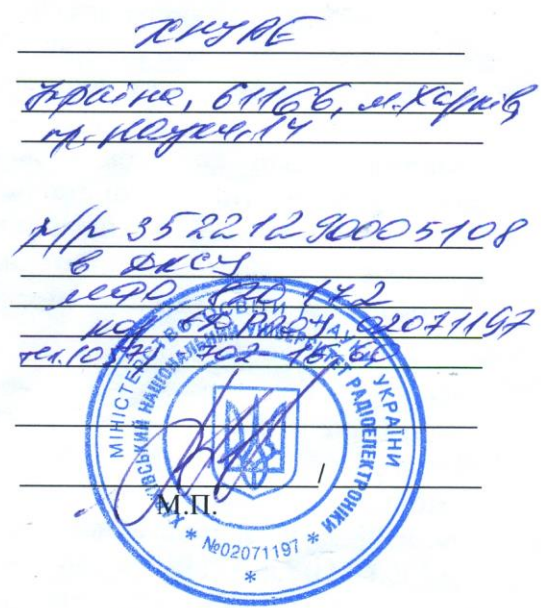 ХНУРЕ
Україна, 61166, м. Харків,
пр. Науки, 14
р/р 35221290005108
в ДКСУ
МФО 820172
код ЄДРПОУ 02071197
тел. (057) 702-
/
М.П.
МІНІСТЕРСТВО ОСВІТИ І НАУКИ УКРАЇНИ
ХАРКІВСЬКИЙ НАЦІОНАЛЬНИЙ УНІВЕРСИТЕТ РАДІОЕЛЕКТРОНІКИ
* №02071197 *
*